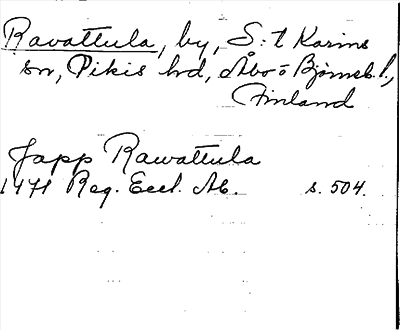 Ravattula, by, S:t Karins
sn, Pikis hd, Åbo o Björneb. l.,
Finland
Japp Rawattula
1471 Reg. Eccl. Ab. s. 504.